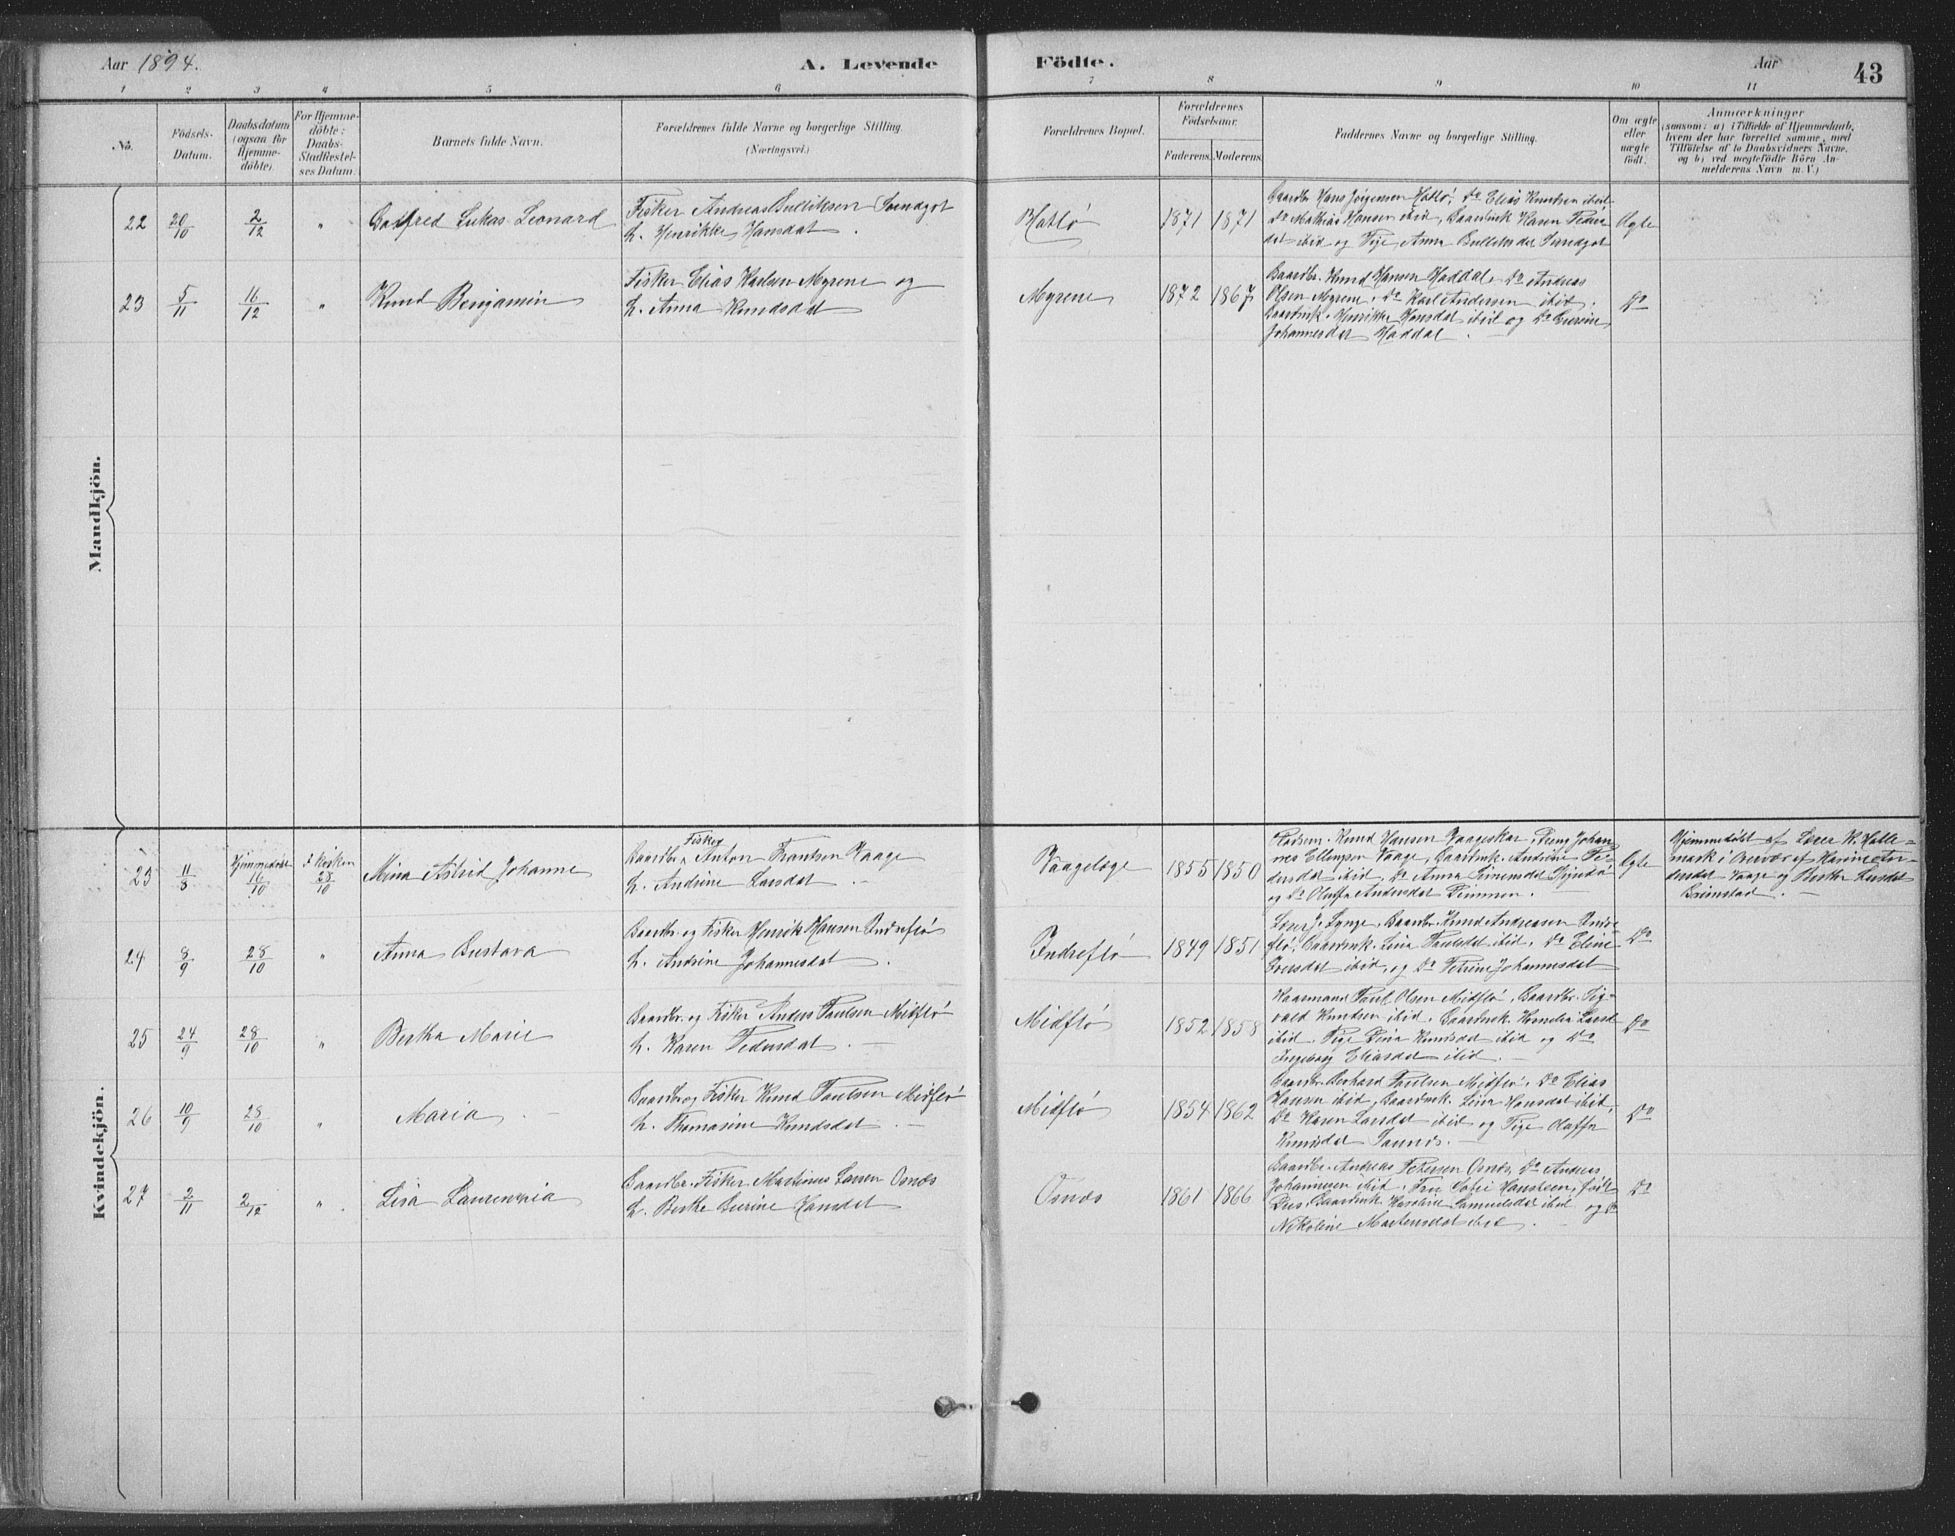 Aar 1894. A. Levende Födte. Aar 43
1 2 3 4 5 6 7 8 9 10 11
No. Födsels-Datum. Daabsdatum (ogsaa for Hjemme-döbte). For Hjemme-döbte: Daabs-Stadfæstel-ses Datum. Barnets fulde Navn. Forældrenes fulde Navne og borgerlige Stilling. (Næringsvei.) Forældrenes Bopæl. Forældrenes Födselsaar. Faderens. Moderens. Faddernes Navne og borgerlige Stilling. Om ægte eller uægte födt. Anmærkninger (saasom: a) i Tilfælde af Hjemmedaab, hvem der har forrettet samme, med Tilföielse af to Daabsvidners Navne, og b) ved uegtefödte Börn An-melderens Navn m. V.)
Mandkjön.
22 20/10 2/12 " Gotfred Lukas Leonard
Fisker Andreas Bulliksen Sundgot
h. Henrikke Hansdat.
Hatlö 1871 1871
Gaardbr. Hans Jørgensen Hatlö, Do Elias Knudsen ibid
Do Mathias Hansen ibid, Gaardmk. Karen Peders-
dat ibid og Pige Anna Bulliksdat Sundgot
Ægte
23 5/11 16/12 " Knud Benjamin
Fisker Elias Karlsen Myrene og
h. Anna Knudsdat
Myrene 1872 1867
Gaardbr. Knud Hansen Haddal, Do Andreas
Olsen Myrene, Do Karl Andersen ibid.
Gaardmk. Henrikke Hansdat ibid og Do Gurine
Johannesdat Haddal.
Do
Kvindekjön.
23 11/8 Hjemmedöbt 16/10 i Kirken 28/10 Mina Astrid Johanne
Gaardbr. Fisker Anton Frantsen Vaage
h. Andrine Larsdat.
Vaagelage 1855 1850
Pladsm. Knud Hansen Vaageskar, Ung Johan-
nes Ellingsen Vaage, Gaardmk. Andrine Pe-
dersdat ibid, Do Anna
og Do Oluffa Andersdat
Ægte
Hjemmedøbt af Lærer K. Hatle-
mark i Overvær af Karine An-
dersdat Vaage og Berthe Larsdat
Grimstad.
24 8/9 28/10 " Anna Gustava
Gaardbr. og Fisker Henrik Hansen Indreflö
h. Andrine Johannesdat.
Indreflö 1849 1851
Lærer J. Lynge, Gaardbr. Knud Andreasen Indre-
flö, Gaardmk. Lina Paulsdat ibid, Do Eline
Iversdat ibid, og Do Petrine Johannesdat
Do
25 24/9 28/10 " Bertha Marie
Gaardbr. og Fisker Anders Paulsen Midflö
h. Karen Pedersdat.
Midflö 1852 1858
Kaarmand Paul Olsen Midflö, Gaardbr. Sig-
vald Knudsen ibid, Gaardmk. Kornelia Larsd.
ibid, Pige Lina Knudsdat ibid og Do
Ingeborg Eliasdat ibid.
Do
26 10/9 28/10 " Maria
Gaardbr. og Fisker Knud Paulsen Midflö
h. Thomasine Knudsdat.
Midflö 1854 1862
Gaardbr. Berhard Paulsen Midflö, Do Elias
Hansen ibid, Gaardmk. Lina Hansdat ibid,
Do Karen Larsdat ibid og Pige Olaffa
Knudsdat
Do
27 2/11 2/12 " Lisa Laurensia
Gaardbr. Fisker Martinus Larsen Osnæs
h. Berthe Gurine Hansdat
Osnæs 1861 1866
Gaardbr. Andreas Petersen Osnæs, Do Andreas
Johannesen ibid, Fru Sofie Hansteen, född
Dus, Gaardmk. Karoline Samuelsdat ibid og Do
Nikoline Martensdat ibid.
Do